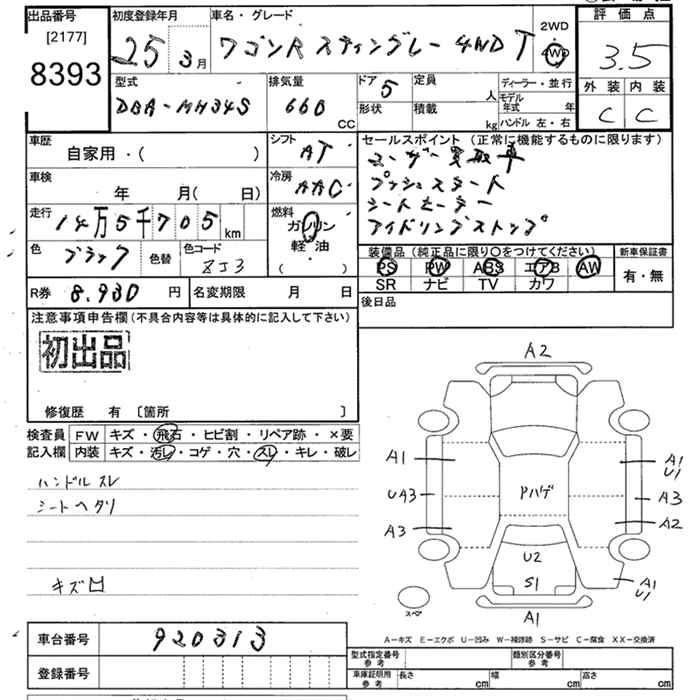 出品番号
[2177]
8393
初度登録年月
25 3月
車名・グレード
ワゴンR スティングレー 4WD T
2WD
4WD
評価点
3.5
外装 内装
C C
型式
DBA-MH34S
排気量
660
CC
ドア 5
形状
定員
人
積載
kg
ディーラー・並行
モデル年式 年
ハンドル 左・右
車歴
自家用・( )
車検
年 月( 日)
走行
14万5千705
km
色
ブラック
色替
色コード
ZJ3
シフト
AT
冷房
AAC
燃料
ガソリン
軽・油
( )
セールスポイント (正常に機能するものに限ります)
ユーザー買取車
プッシュスタート
シートヒーター
アイドリングストップ
装備品(純正品に限り○をつけてください)
PS PW ABS エアB AW
SR ナビ TV カワ
新車保証書
有・無
R券 8.930 円
名変期限 月 日
後日品
注意事項申告欄(不具合内容等は具体的に記入して下さい)
初出品
修復歴 有 [箇所 ]
検査員
記入欄
FW キズ・飛石・ヒビ割・リペア跡・×要
内装 キズ・汚レ・コゲ・穴・スレ・キレ・破レ
ハンドルスレ
シートヘタリ
キズ凹
A2
A1
UA3
A3
Pハゲ
A1
U1
A3
A2
U2
S1
A1
U1
A1
スペア
A−キズ E−エクボ U−凹み W−補修跡 S−サビ C−腐食 XX−交換済
車台番号
920313
登録番号
型式指定番号
参考
類別区分番号
参考
車庫証明用
参考
長さ cm 幅 cm 高さ cm